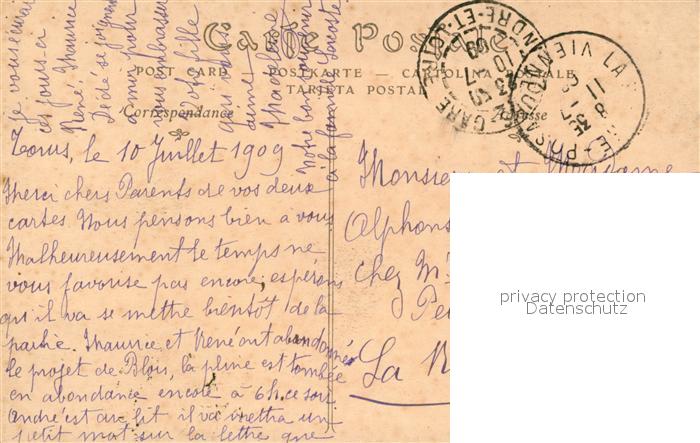 Carte Postale
POST CARD — POSTKARTE — CARTOLINA POSTALE
TARJETA POSTAL
Correspondance
Adresse
Tours, le 10 Juillet 1909
Merci chers Parents de vos deux
cartes Nous pensons bien à vous
Malheureusement le temps ne
vous favorise pas encore, espérons
qu'il va se mettre bientôt de la
partie. Maurice et René ont abandonné
le projet de Blois, la pluie est tombée
en abondance encore à 6h. ce soir
André est au lit il va mettre un
petit mot sur la lettre que
je vous écrirai
ces jours-ci
René, Maurice
Dédé se joignent
à moi pour
vous embrasser
Votre fille
qui vous
aime
Magdeleine
Notre bon souvenir
à la famille
Monsieur et Madame
Alphons
chez Mr
La R
GARE
INDRE-ET-LOIRE
10-7
09
LA
VIENNE
11
privacy protection
Datenschutz